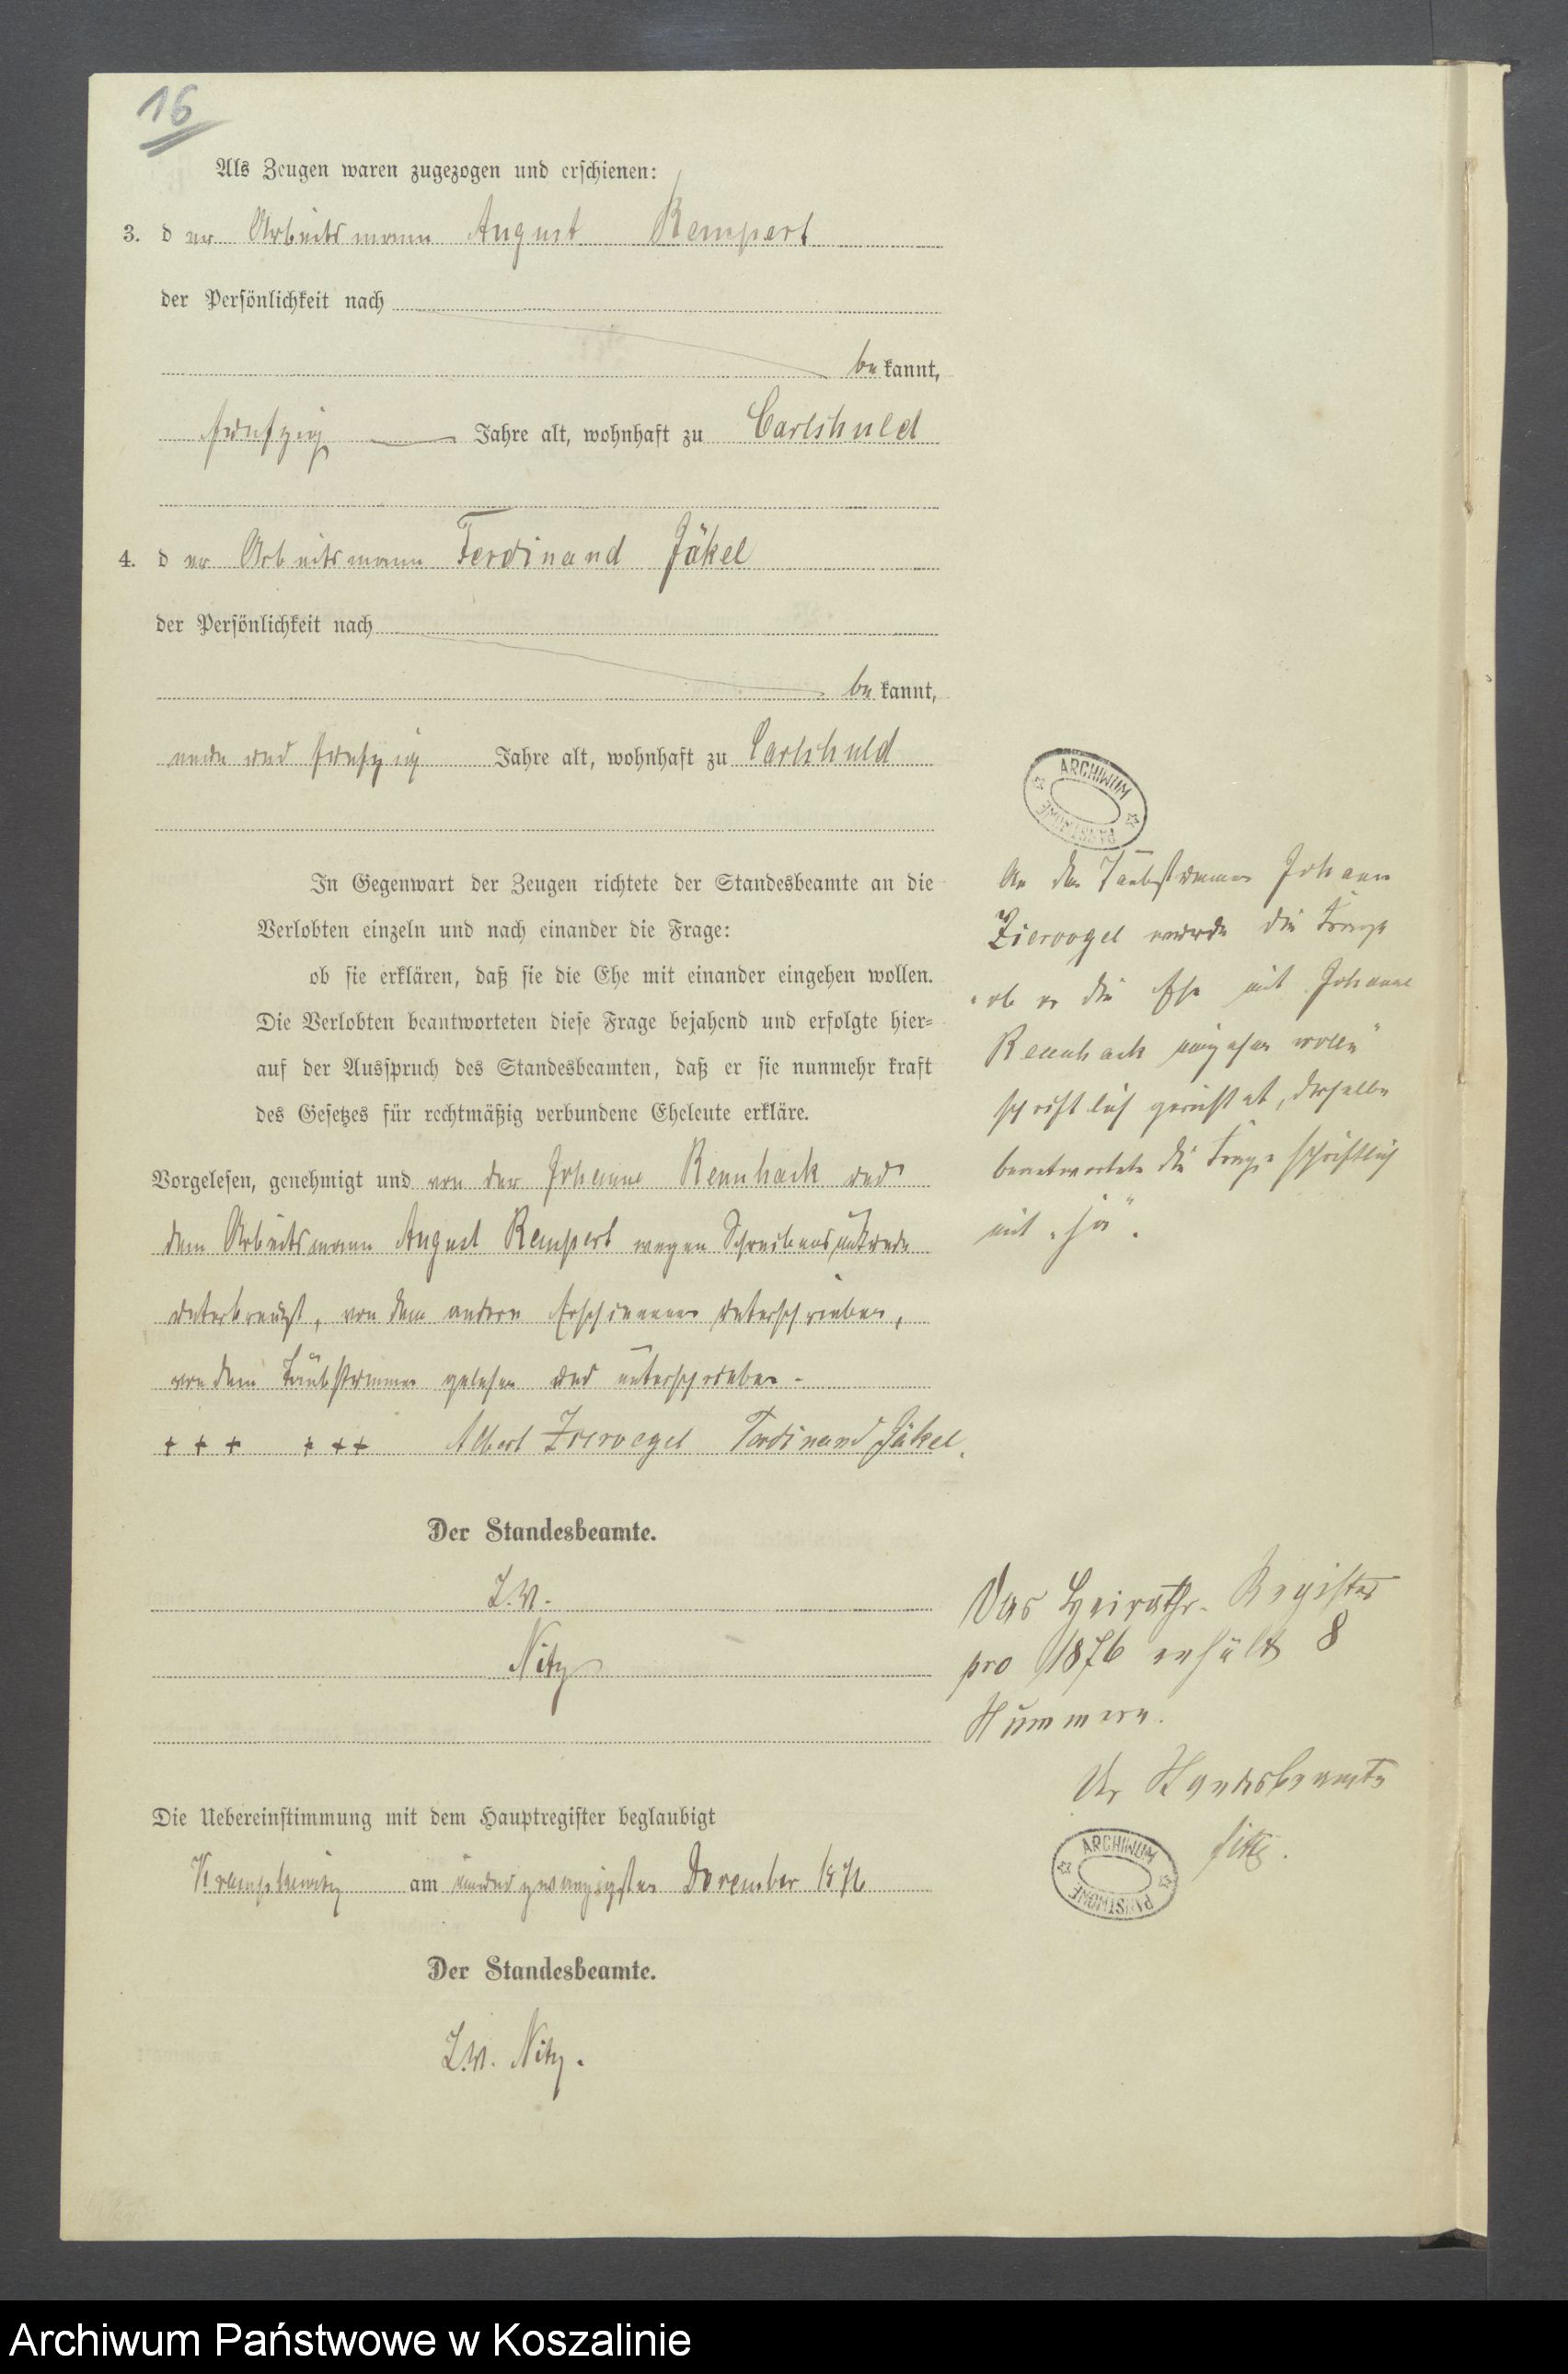 16
Als Zeugen waren zugezogen und erschienen:
3. der Arbeitsmann August Rempert
der Persönlichkeit nach
bekannt,
funfzig Jahre alt, wohnhaft zu Carlshuld
4. der Arbeitsmann Ferdinand Jäkel
der Persönlichkeit nach
bekannt,
und funfzig Jahre alt, wohnhaft zu Carlshuld
In Gegenwart der Zeugen richtete der Standesbeamte an die
Verlobten einzeln und nach einander die Frage:
ob sie erklären, daß sie die Ehe mit einander eingehen wollen.
Die Verlobten beantworteten diese Frage bejahend und erfolgte hier=
auf der Ausspruch des Standesbeamten, daß er sie nunmehr kraft
des Gesetzes für rechtmäßig verbundene Eheleute erkläre.
Vorgelesen, genehmigt und von der Johanne Rennhack und
dem Arbeitsmann August Rempert wegen Schreibensunkunde
unterkreuzt, von dem andern Erschienenen unterschrieben,
von dem Taubstummen gelesen und unterschrieben.
+++ +++ Albert Ziervogel Ferdinand Jäkel.
Der Standesbeamte.
Nitz
Die Uebereinstimmung mit dem Hauptregister beglaubigt
Krampkewitz am December 1876
Der Standesbeamte.
Nitz.
ARCHIWUM PAŃSTWOWE
An den Taubstummen Johann
Ziervogel wurde die Frage
"ob er die Ehe mit Johanne
Rennhack eingehen wolle"
schriftlich gerichtet, derselbe
beantwortete die Frage schriftlich
mit "ja".
Das Heiraths-Register
pro 1876 enthält 8
Nummern.
Der Standesbeamte
ARCHIWUM PAŃSTWOWE
Archiwum Państwowe w Koszalinie